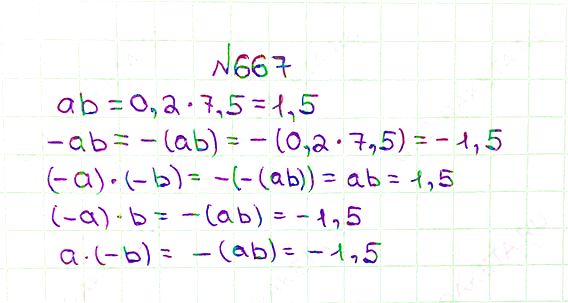 №667
ab = 0,2 · 7,5 = 1,5
-ab = -(ab) = -(0,2 · 7,5) = -1,5
(-a) · (-b) = -(-(ab)) = ab = 1,5
(-a) · b = -(ab) = -1,5
a · (-b) = -(ab) = -1,5